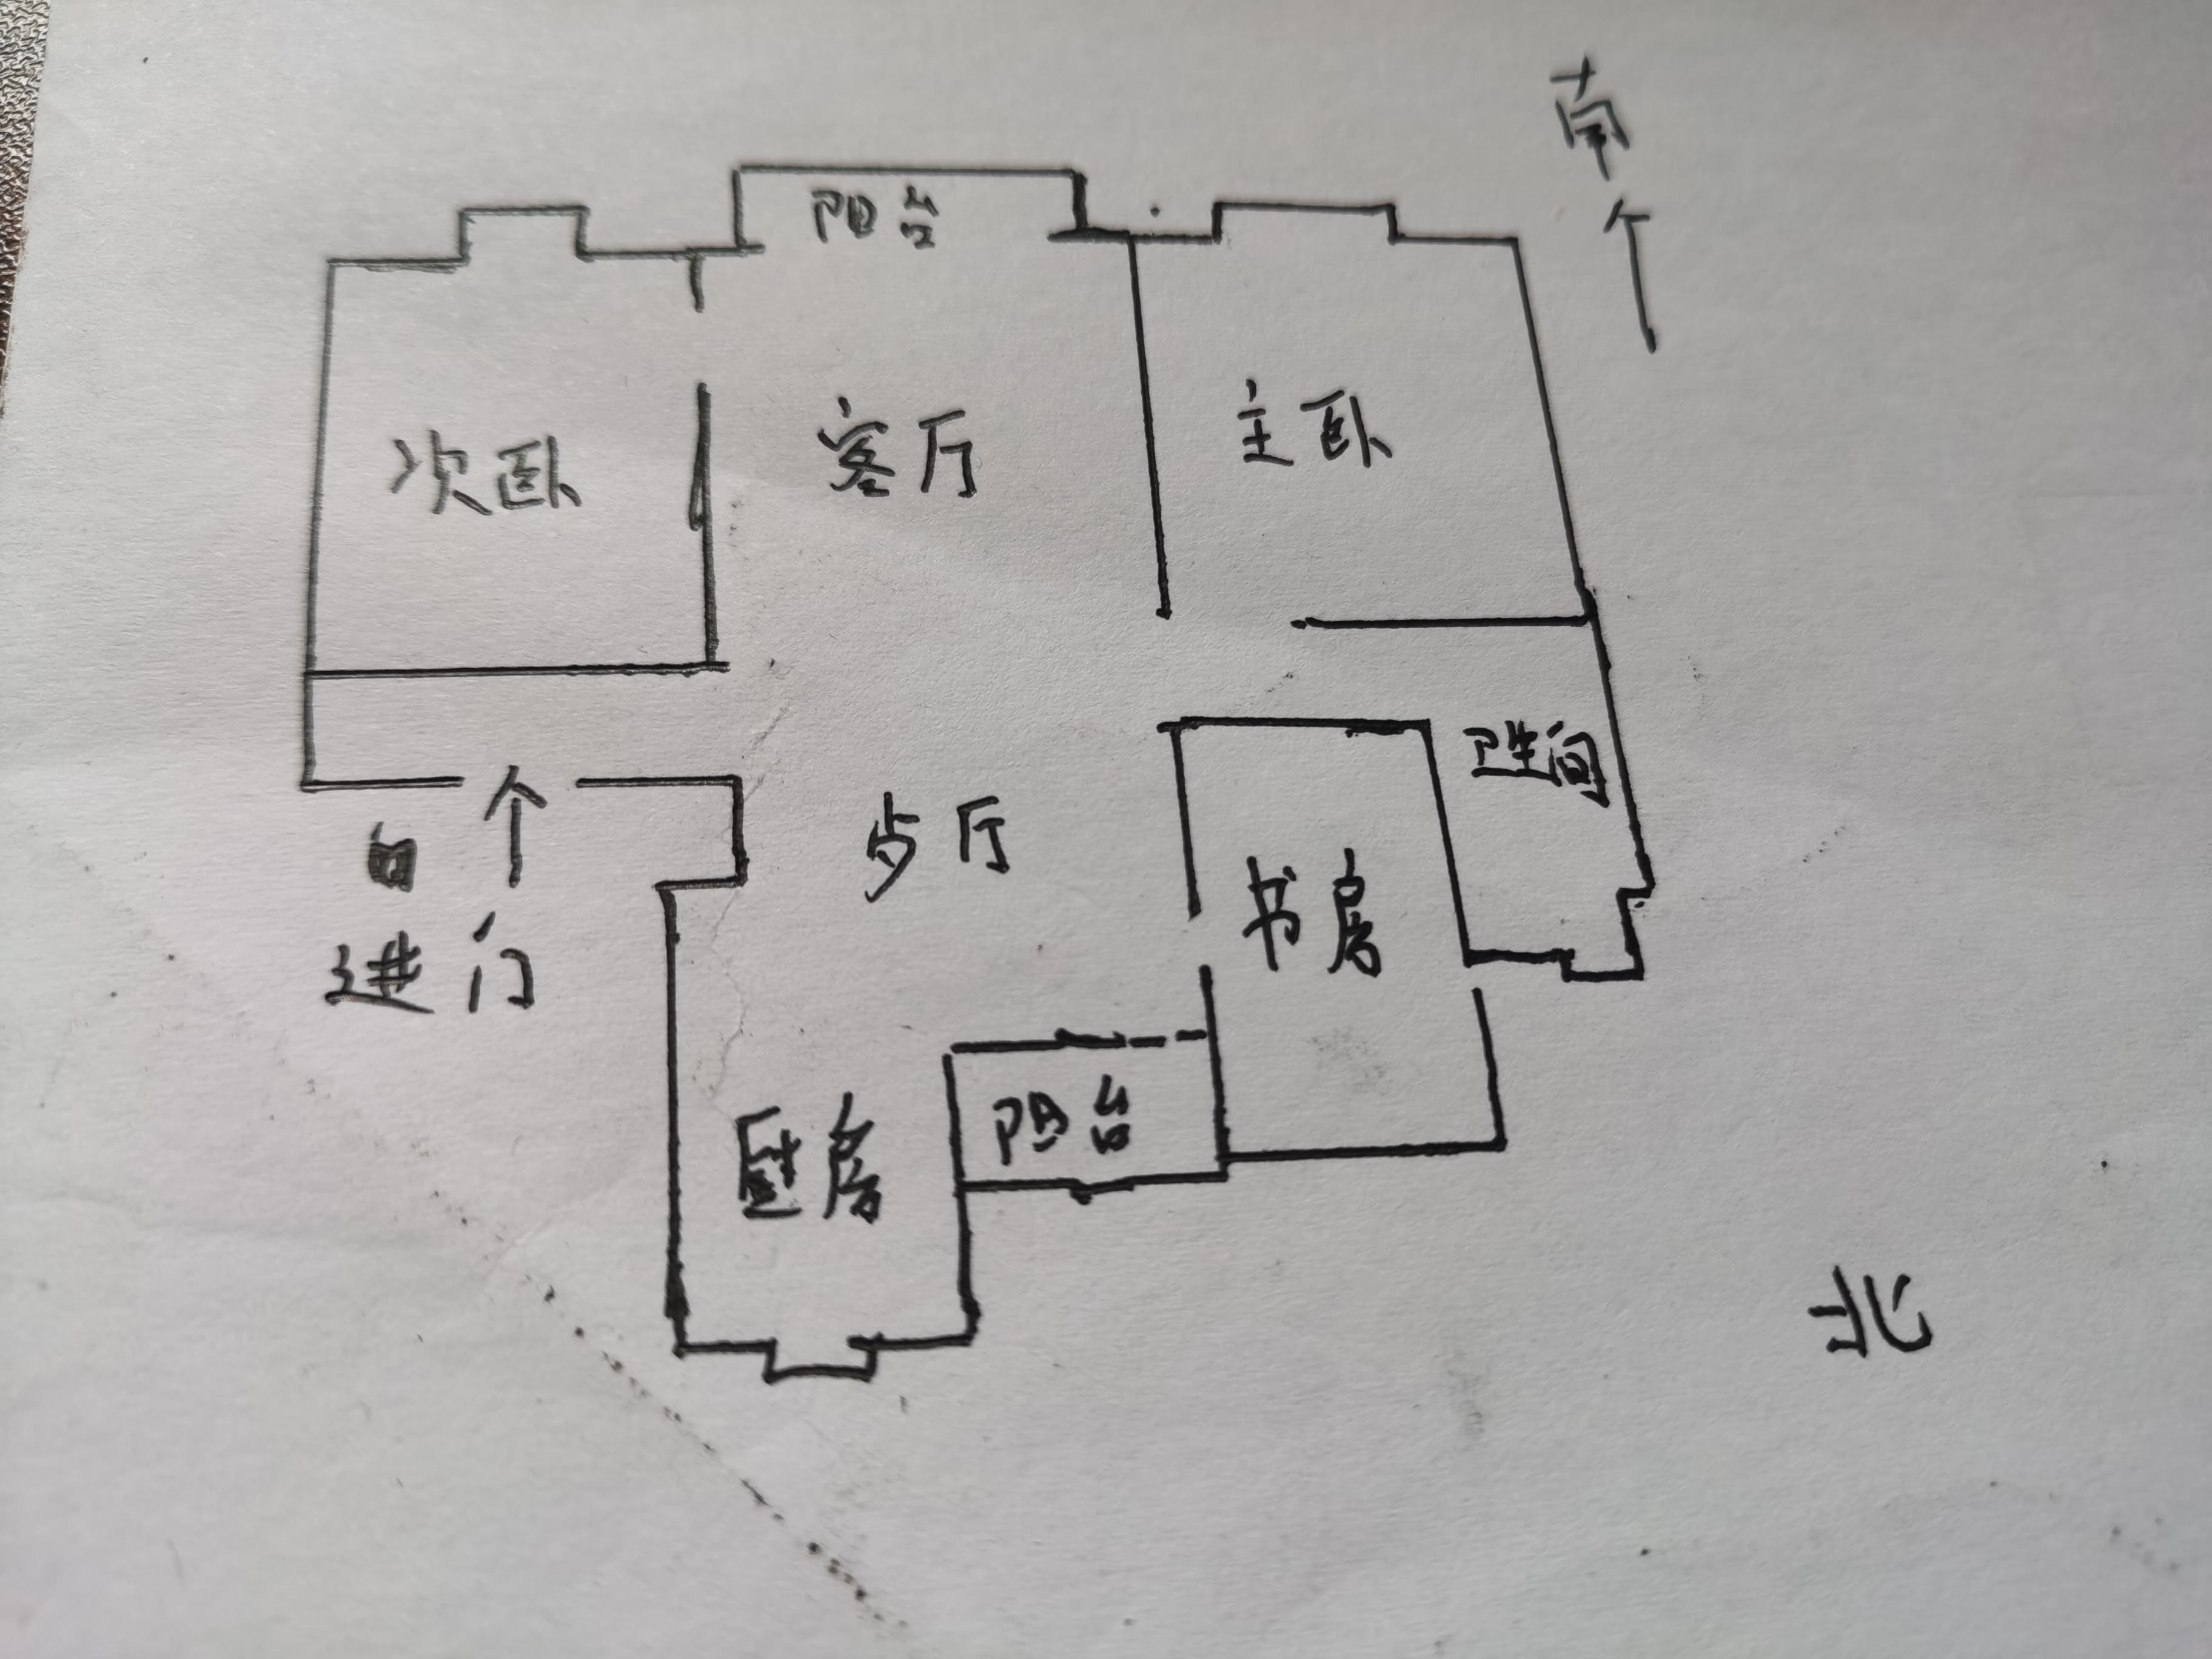 南
阳台
次卧
客厅
主卧
卫生间
步厅
书房
进门
阳台
厨房
北